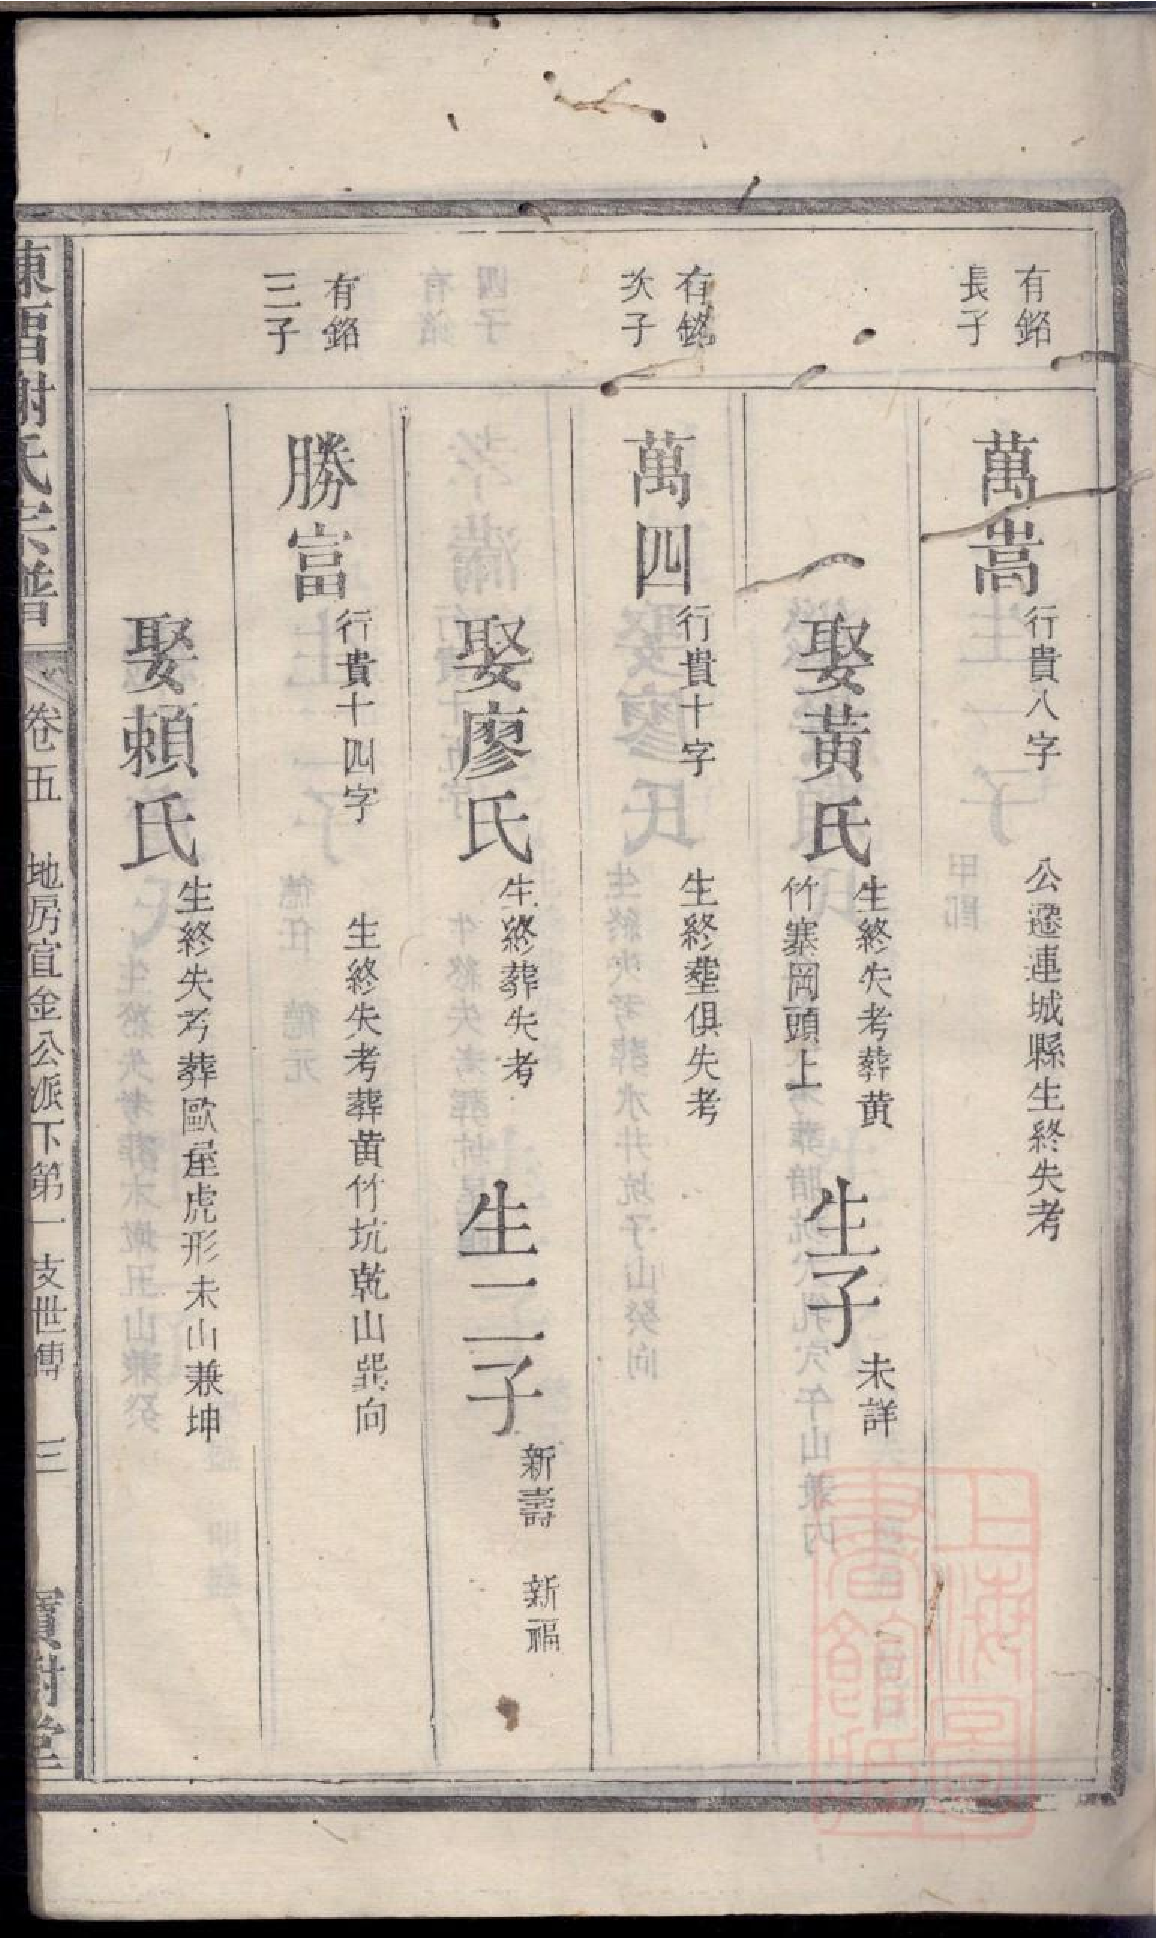 有銘
長子
萬嵩
行貴八字
公遷連城縣生終失考
娶黃氏
生終失考葬黄
竹寨岡頭上
生子
未詳
有銘
次子
萬四
行貴十字
生終塟俱失考
娶廖氏
生終葬失考
生二子
新壽 新福
有銘
三子
勝富
行貴十四字
生終失考葬黄竹坑乾山巽向
娶賴氏
生終失考葬歐屋虎形未山兼坤
謝氏宗譜 卷五 地房宜金公派下第一支世傳 三 寶樹堂
上海圖書館藏